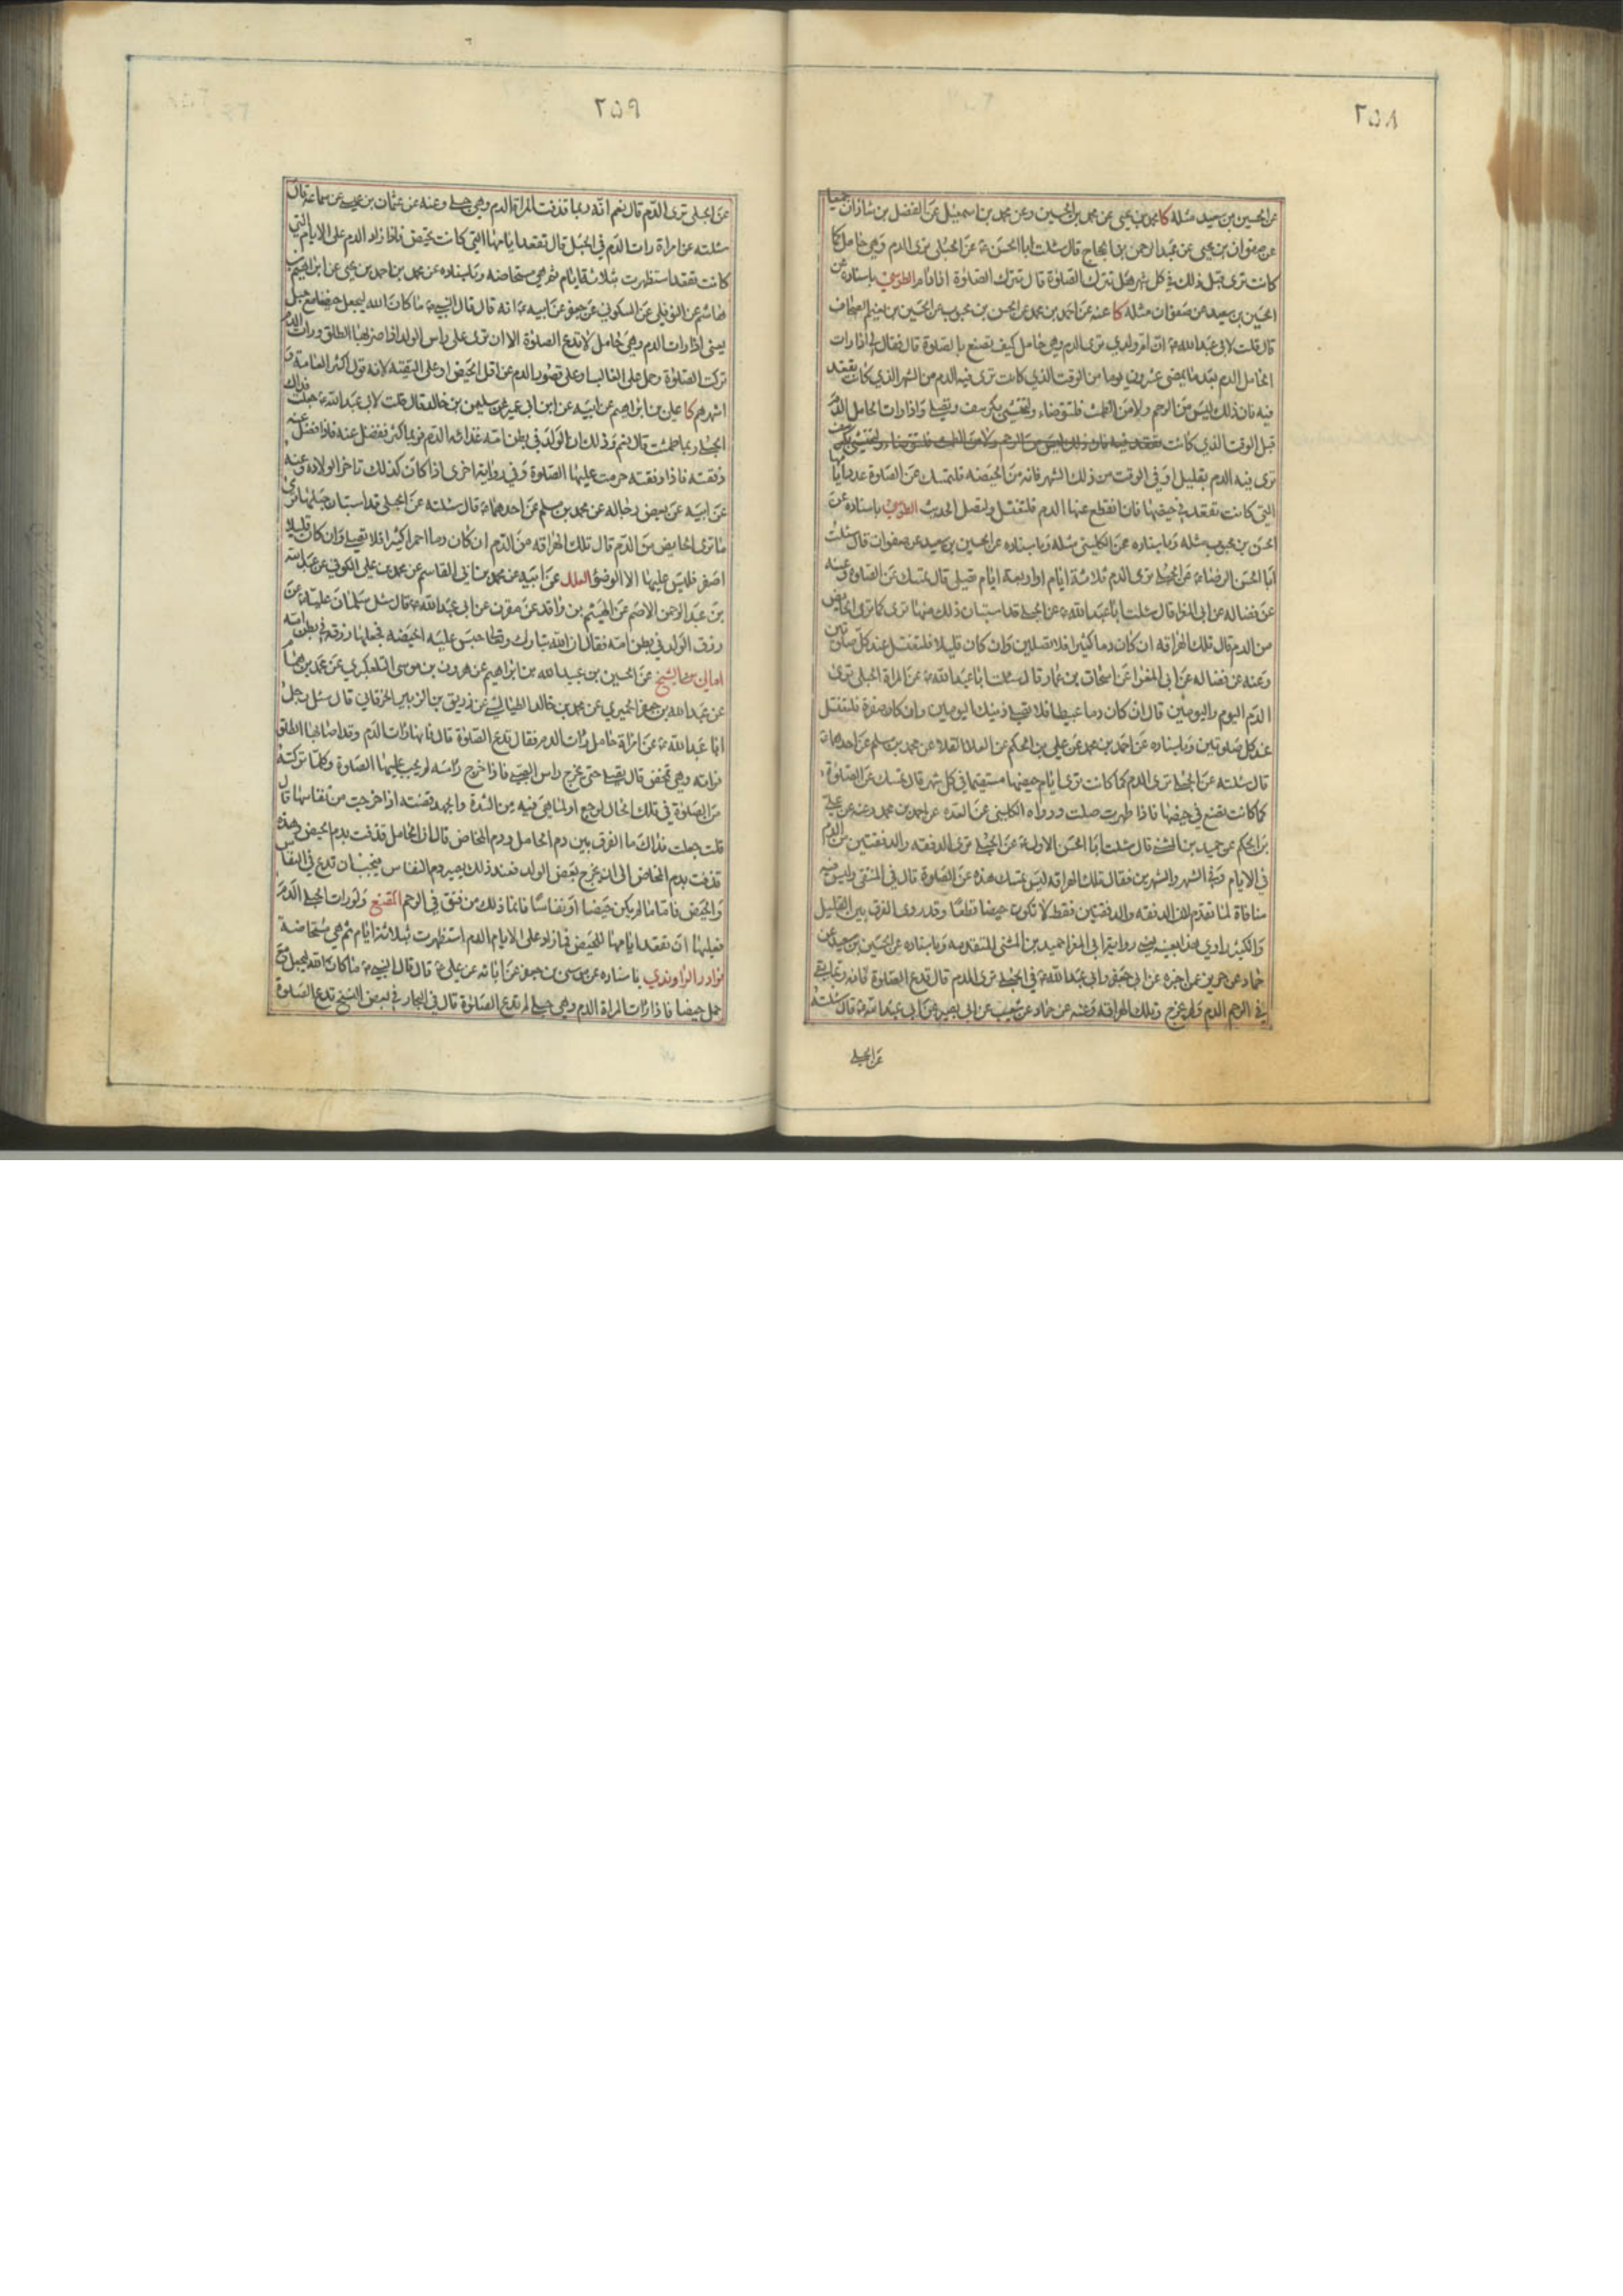 ٢٥٨
عن الحسين بن سعيد مثله كا محمد بن يحيى عن محمد بن الحسين وعن محمد بن اسمعيل عن الفضل بن شاذان جميعا
عن صفوان بن يحيى عن عبد الرحمن بن الحجاج قال سئلت ابا الحسن ع عن الحبلى ترى الدم وهي حامل كما
كانت ترى قبل ذلك في كل شهر هل تترك الصلوة قال تترك الصلوة اذا دام الطوسي باسناده عن
الحسين بن سعيد عن صفوان مثله كا عنه عن احمد بن محمد عن الحسن بن محبوب عن الحسين بن نعيم الصحاف
قال قلت لابي عبد الله ع ان ام ولدي ترى الدم وهي حامل كيف تصنع بالصلوة قال فقال لي اذا رات
الحامل الدم بعد ما يمضي عشرون يوما من الوقت الذي كانت ترى فيه الدم من الشهر الذي كانت تقعد
فيه فان ذلك ليس من الرحم ولا من الطمث فلتتوضاء وتحتشي بكرسف وتصلي واذا رات الحامل الدم
قبل الوقت الذي كانت تقعد فيه فان ذلك ليس من الرحم ولا من الطمث فلتتوضا وتحتشي بكرسف
ترى فيه الدم بقليل او في الوقت من ذلك الشهر فانه من الحيضه فلتمسك عن الصلوة عدد ايامها
التي كانت تقعد في حيضها فان انقطع عنها الدم فلتغتسل ولتصل الحديث الطوسي باسناده عن
الحسن بن محبوب مثله وباسناده عن الكليني مثله وباسناده عن الحسين بن سعيد عن صفوان قال سئلت
ابا الحسن الرضا ع عن الحبلى ترى الدم ثلاثة ايام او اربعة ايام تصلي قال تمسك عن الصلوة وعنه
عن فضاله عن ابي المغرا قال سئلت ابا عبد الله ع عن الحبلى قد استبان ذلك منها ترى كما ترى الحايض
من الدم قال تلك الهراقه ان كان دما كثيرا فلا تصلين وان كان قليلا فلتغتسل عند كل صلوتين
وعنه عن فضاله عن ابي المغرا عن اسحاق بن عمار قال سئلت ابا عبد الله ع عن المراة الحبلى ترى
الدم اليوم واليومين قال ان كان دما عبيطا فلا تصلي ذينك اليومين وان كان صفرة فلتغتسل
عند كل صلوتين وباسناده عن احمد بن محمد عن علي بن الحكم عن العلا عن محمد بن مسلم عن احدهما ع
قال سئلته عن الحبلى ترى الدم كما كانت ترى ايام حيضها مستقيما في كل شهر قال تمسك عن الصلوة
كما كانت تصنع في حيضها فاذا طهرت صلت ورواه الكليني عن العده عن احمد بن محمد وعنه عن علي
بن الحكم عن حميد بن المثنى قال سئلت ابا الحسن الاول ع عن الحبلى ترى الدفقه والدفقتين من الدم
في الايام وفي الشهر والشهرين فقال تلك الهراقه ليس تمسك هذه عن الصلوة قال في المنتقى وليس فيه
منافاة لما تقدم لان الدفقه والدفقتين فقط لا تكون حيضا قطعا وقد روى الفرق بين القليل
والكثير راوي هذا بعينه في رواية ابي المغرا حميد بن المثنى المتقدمه وباسناده عن الحسين بن سعيد عن
حماد عن حريز عن اخبره عن ابي جعفر وابي عبد الله ع في الحبلى ترى الدم قال تدع الصلوة فانه ربما بقي
في الرحم الدم ولم يخرج وتلك الهراقه وعنه عن حماد عن شعيب عن ابي بصير عن ابي عبد الله ع قال سئلته
عن الحبلى
٢٥٩
عن الحبلى ترى الدم قال نعم انه ربما قذفت المراة الدم وهي حبلى وعنه عن عثمان بن عيسى عن سماعه قال
سئلته عن امراة رات الدم في الحبل قال تقعد ايامها التي كانت تحيض فاذا زاد الدم على الايام التي
كانت تقعد استظهرت بثلاثة ايام ثم هي مستحاضه وباسناده عن محمد بن احمد بن يحيى عن ابراهيم بن
هاشم عن النوفلي عن السكوني عن جعفر عن ابيه ع انه قال قال النبي ص ما كان الله ليجعل حيضا مع حبل
يعني اذا رات الدم وهي حامل لا تدع الصلوة الا ان ترى على راس الولد اذا ضربها الطلق ورات الدم
تركت الصلوة وحمل على الغالب او على قصور الدم عن اقل الحيض او على التقيه لانه قول اكثر العامة و
اشهرهم كا علي بن ابراهيم عن ابيه عن ابن ابي عمير عن سليمن بن خالد قال قلت لابي عبد الله ع جعلت فداك
الحبلى ربما طمثت قال نعم وذلك ان الولد في بطن امه غذائه الدم فربما كثر ففضل عنه فاذا فضل عنه
دفقته فاذا دفقته حرمت عليها الصلوة وفي رواية اخرى اذا كان كذلك تاخر الولاده وعنه
عن ابيه عن بعض رجاله عن محمد بن مسلم عن احدهما ع قال سئلته عن الحبلى قد استبان حبلها ترى
ما ترى الحايض من الدم قال تلك الهراقه من الدم ان كان دما احمر كثيرا فلا تصلي وان كان قليلا
اصفر فليس عليها الا الوضوء العلل عن ابيه عن محمد بن ابي القاسم عن محمد بن علي الكوفي عن عبد الله
بن عبد الرحمن الاصم عن الهيثم بن واقد عن مقرن عن ابي عبد الله ع قال سئل سلمان عليا ع عن
رزق الولد في بطن امه فقال ان الله تبارك وتعالى حبس عليه الحيضه فجعلها رزقه في بطن امه
امالي ابن الشيخ عن الحسين بن عبيد الله بن ابراهيم عن هرون بن موسى التلعكبري عن محمد بن همام
عن عبد الله بن جعفر الحميري عن محمد بن خالد الطيالسي عن زريق بن الزبير الخرقاني قال سئل رجل
ابا عبد الله ع عن امراة حامل رات الدم فقال تدع الصلوة قال فانها رات الدم وقد اصابها الطلق
فراته وهي تمخض قال تصلي حتى يخرج راس الصبي فاذا خرج راسه لم يجب عليها الصلوة وكلما تركته
من الصلوة في تلك الحال لوجع او لما هي فيه من الشدة والجهد قضته اذا خرجت من نفاسها قال
قلت جعلت فداك ما الفرق بين دم الحامل ودم المخاض قال ان الحامل قذفت بدم الحيض وهذه
قذفت بدم المخاض الى ان يخرج بعض الولد فعند ذلك يصير دم النفاس فيجب ان تدع في النفاس
والحيض فاما ما لم يكن حيضا او نفاسا فانما ذلك من فتق في الرحم المقنع ولو رات الحبلى الدم
فعليها ان تقعد ايامها للحيض فما زاد على الايام الدم استظهرت بثلاثة ايام ثم هي مستحاضه
نوادر الراوندي باسناده عن موسى بن جعفر عن ابائه عن علي ع قال قال النبي ص ما كان الله ليجعل مع
حمل حيضا فاذا رات المراة الدم وهي حبلى لم تدع الصلوة قال في البحار في بعض النسخ تدع الصلوة